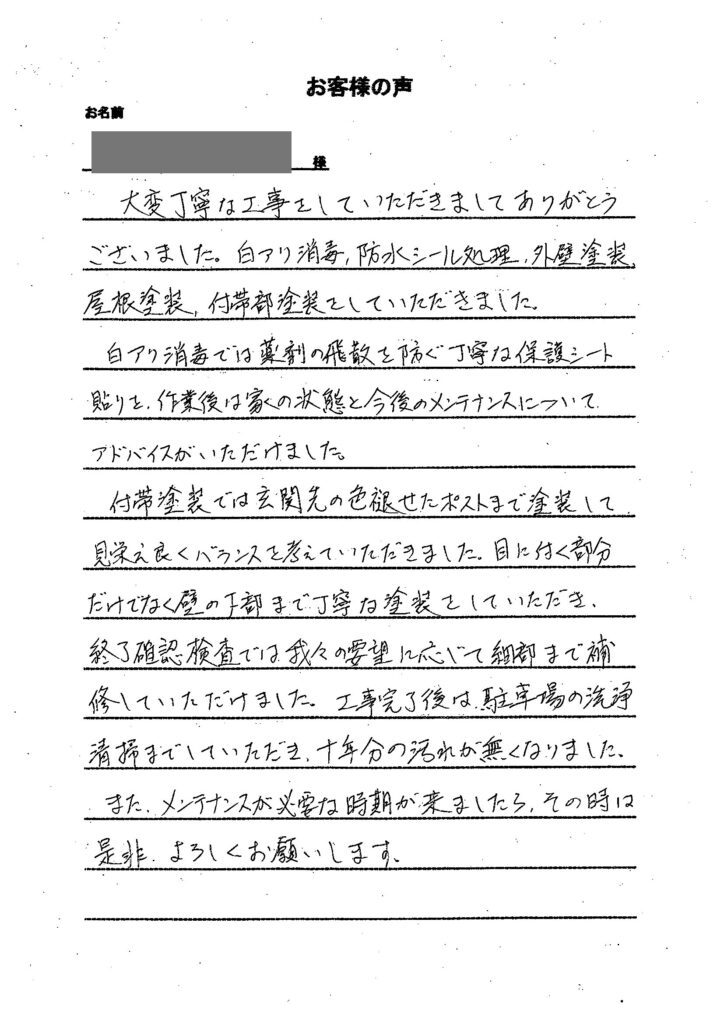 お客様の声
お名前
様
大変丁寧な工事をしていただきましてありがとう
ございました。白アリ消毒,防水シール処理,外壁塗装,
屋根塗装,付帯部塗装をしていただきました。
白アリ消毒では薬剤の飛散を防ぐ丁寧な保護シート
貼りを、作業後は家の状態と今後のメンテナンスについて
アドバイスがいただけました。
付帯塗装では玄関先の色褪せたポストまで塗装して
見栄え良くバランスを考えていただきました。目に付く部分
だけでなく壁の下部まで丁寧な塗装をしていただき、
終了確認検査では我々の要望に応じて細部まで補
修していただけました。工事完了後は、駐車場の洗浄
清掃までしていただき、十年分の汚れが無くなりました。
また、メンテナンスが必要な時期が来ましたら、その時は
是非、よろしくお願いします。